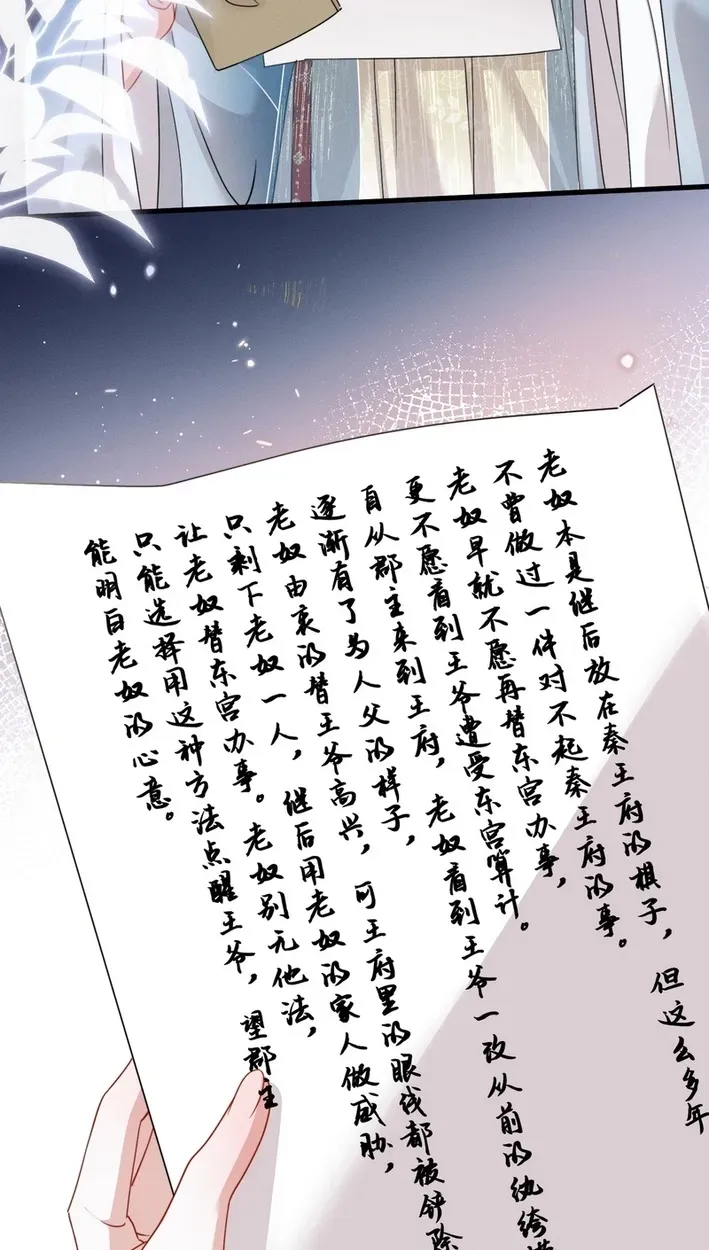 老奴本是继后放在秦王府的棋子，但这么多年
不曾做过一件对不起秦王府的事。
老奴早就不愿再替东宫办事，
更不愿看到王爷遭受东宫算计。
自从郡主来到王府，老奴看到王爷一改从前的纨绔
逐渐有了为人父的样子，
老奴由衷的替王爷高兴，可王府里的眼线都被铲除
只剩下老奴一人，继后用老奴的家人做威胁，
让老奴替东宫办事。老奴别无他法，
只能选择用这种方法点醒王爷，望郡主
能明白老奴的心意。